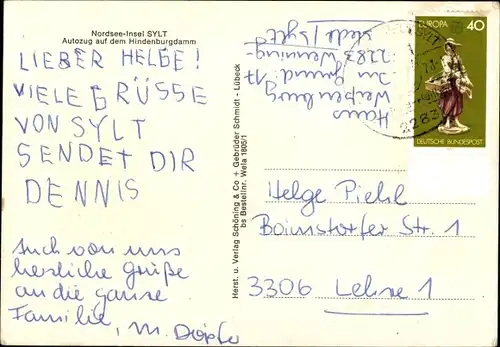 Nordsee-Insel SYLT
Autozug auf dem Hindenburgdamm
LIEBER HELGE!
VIELE GRÜSSE
VON SYLT
SENDET DIR
DENNIS
Auch von uns
herzliche Grüße
an die ganze
Familie, M.
Herst. u. Verlag Schöning & Co + Gebrüder Schmidt - Lübeck
bs Bestellnr. Wela 1805/1
Haus
Weißenburg
Im Grund 17
2283 Wenning
stedt/Sylt
SYLT
2283
EUROPA 40
DEUTSCHE BUNDESPOST
Helge Piehl
Str. 1
3306 Lehre 1